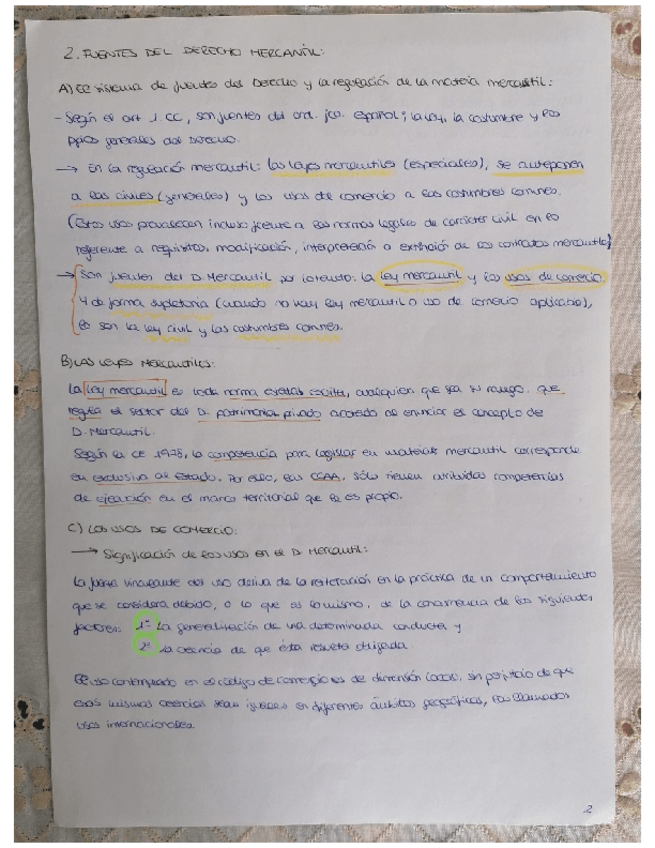 2. FUENTES DEL DERECHO MERCANTIL:
A) El sistema de fuentes del Derecho y la regulación de la materia mercantil:
- Según el art 1. CC, son fuentes del ord. jco. español; la ley, la costumbre y los
ppios generales del Derecho.
→ En la regulación mercantil: las leyes mercantiles (especiales), se anteponen
a las civiles (generales) y los usos de comercio a las costumbres comunes.
(Estos usos prevalecen incluso frente a las normas legales de carácter civil en lo
referente a requisitos, modificación, interpretación o extinción de los contratos mercantiles)
→ Son fuentes del D. Mercantil por lo tanto: la ley mercantil y los usos de comercio.
Y de forma supletoria (cuando no hay ley mercantil o uso de comercio aplicable),
lo son la ley civil y las costumbres comunes.
B) LAS LEYES MERCANTILES:
La ley mercantil es toda norma escrita, cualquiera que sea su rango, que
regula el sector del D. patrimonial privado acotado al enunciar el concepto de
D. Mercantil.
Según la CE 1978, la competencia para legislar en materia mercantil corresponde
en exclusiva al Estado. Por ello, las CCAA, sólo tienen atribuidas competencias
de ejecución en el marco territorial que les es propio.
C) LOS USOS DE COMERCIO:
→ Significación de los usos en el D. Mercantil:
La fuerza vinculante del uso deriva de la reiteración en la práctica de un comportamiento
que se considera debido, o lo que es lo mismo, de la concurrencia de los siguientes
factores: 1º La generalización de una determinada conducta y
2º La creencia de que ésta resulta obligada.
El uso contemplado en el código de comercio es de dimensión local, sin perjuicio de que
esas mismas creencias sean iguales en diferentes ámbitos geográficos, los llamados
usos internacionales.
2